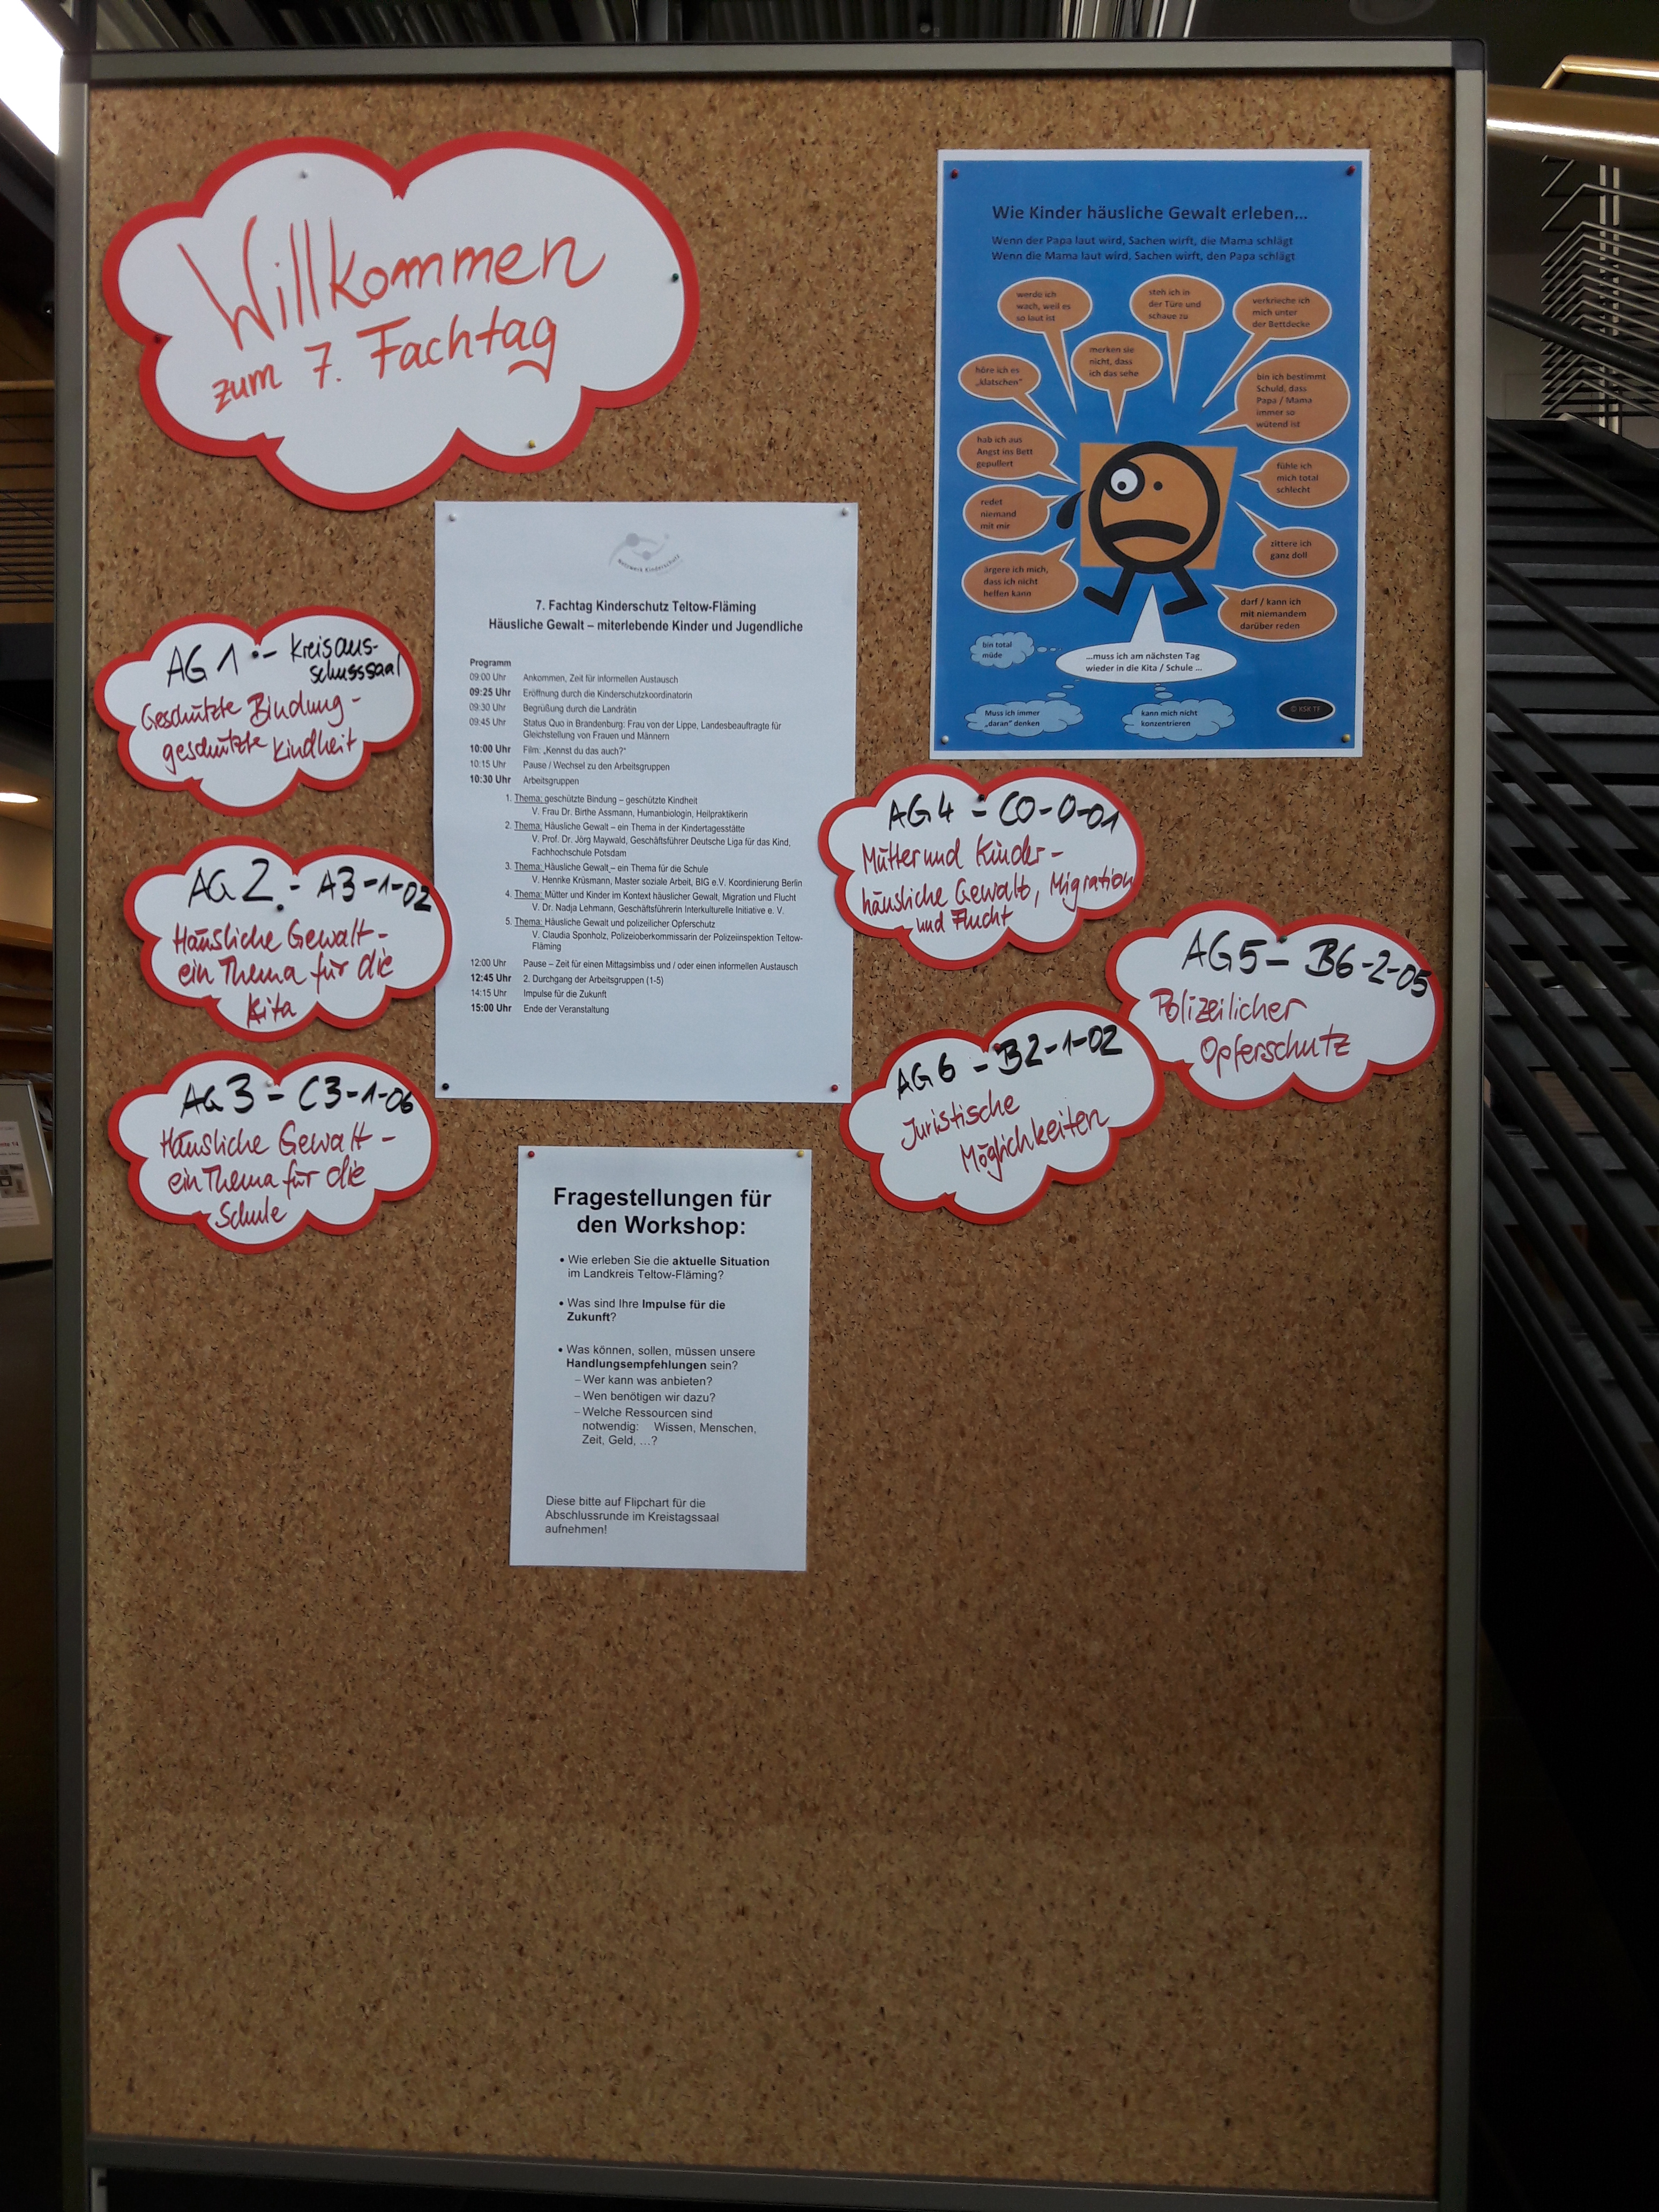 Willkommen
zum 7. Fachtag
Wie Kinder häusliche Gewalt erleben...
Wenn der Papa laut wird, Sachen wirft, die Mama schlägt
Wenn die Mama laut wird, Sachen wirft, den Papa schlägt
werde ich
wach, weil es
so laut ist
steh ich in
der Türe und
schaue zu
verkrieche ich
mich unter
der Bettdecke
merken sie
nicht, dass
ich das sehe
höre ich es
„klatschen“
bin ich bestimmt
Schuld, dass
Papa / Mama
immer so
wütend ist
hab ich aus
Angst ins Bett
gepullert
fühle ich
mich total
schlecht
redet
niemand
mit mir
zittere ich
ganz doll
ärgere ich mich,
dass ich nicht
helfen kann
darf / kann ich
mit niemandem
darüber reden
bin total
müde
...muss ich am nächsten Tag
wieder in die Kita / Schule ...
Muss ich immer
„daran“ denken
kann mich nicht
konzentrieren
© KSK TF
Netzwerk Kinderschutz
7. Fachtag Kinderschutz Teltow-Fläming
Häusliche Gewalt – miterlebende Kinder und Jugendliche
Programm
09:00 Uhr Ankommen, Zeit für informellen Austausch
09:25 Uhr Eröffnung durch die Kinderschutzkoordinatorin
09:30 Uhr Begrüßung durch die Landrätin
09:45 Uhr Status Quo in Brandenburg: Frau von der Lippe, Landesbeauftragte für
Gleichstellung von Frauen und Männern
10:00 Uhr Film: „Kennst du das auch?“
10:15 Uhr Pause / Wechsel zu den Arbeitsgruppen
10:30 Uhr Arbeitsgruppen
1. Thema: geschützte Bindung – geschützte Kindheit
V. Frau Dr. Birthe Assmann, Humanbiologin, Heilpraktikerin
2. Thema: Häusliche Gewalt – ein Thema in der Kindertagesstätte
V. Prof. Dr. Jörg Maywald, Geschäftsführer Deutsche Liga für das Kind,
Fachhochschule Potsdam
3. Thema: Häusliche Gewalt – ein Thema für die Schule
V. Henrike Krüsmann, Master soziale Arbeit, BIG e.V. Koordinierung Berlin
4. Thema: Mütter und Kinder im Kontext häuslicher Gewalt, Migration und Flucht
V. Dr. Nadja Lehmann, Geschäftsführerin Interkulturelle Initiative e. V.
5. Thema: Häusliche Gewalt und polizeilicher Opferschutz
V. Claudia Sponholz, Polizeioberkommissarin der Polizeiinspektion Teltow-
Fläming
12:00 Uhr Pause – Zeit für einen Mittagsimbiss und / oder einen informellen Austausch
12:45 Uhr 2. Durchgang der Arbeitsgruppen (1-5)
14:15 Uhr Impulse für die Zukunft
15:00 Uhr Ende der Veranstaltung
AG 1 - Kreisaus-
schusssaal
Geschützte Bindung -
geschützte Kindheit
AG 2 - A3-1-02
Häusliche Gewalt -
ein Thema für die
Kita
AG 3 - C3-1-06
Häusliche Gewalt -
ein Thema für die
Schule
AG 4 - C0-0-01
Mütter und Kinder -
häusliche Gewalt, Migration
und Flucht
AG 5 - B6-2-05
Polizeilicher
Opferschutz
AG 6 - B2-1-02
Juristische
Möglichkeiten
Fragestellungen für
den Workshop:
• Wie erleben Sie die aktuelle Situation
im Landkreis Teltow-Fläming?
• Was sind Ihre Impulse für die
Zukunft?
• Was können, sollen, müssen unsere
Handlungsempfehlungen sein?
– Wer kann was anbieten?
– Wen benötigen wir dazu?
– Welche Ressourcen sind
notwendig: Wissen, Menschen,
Zeit, Geld, …?
Diese bitte auf Flipchart für die
Abschlussrunde im Kreistagssaal
aufnehmen!